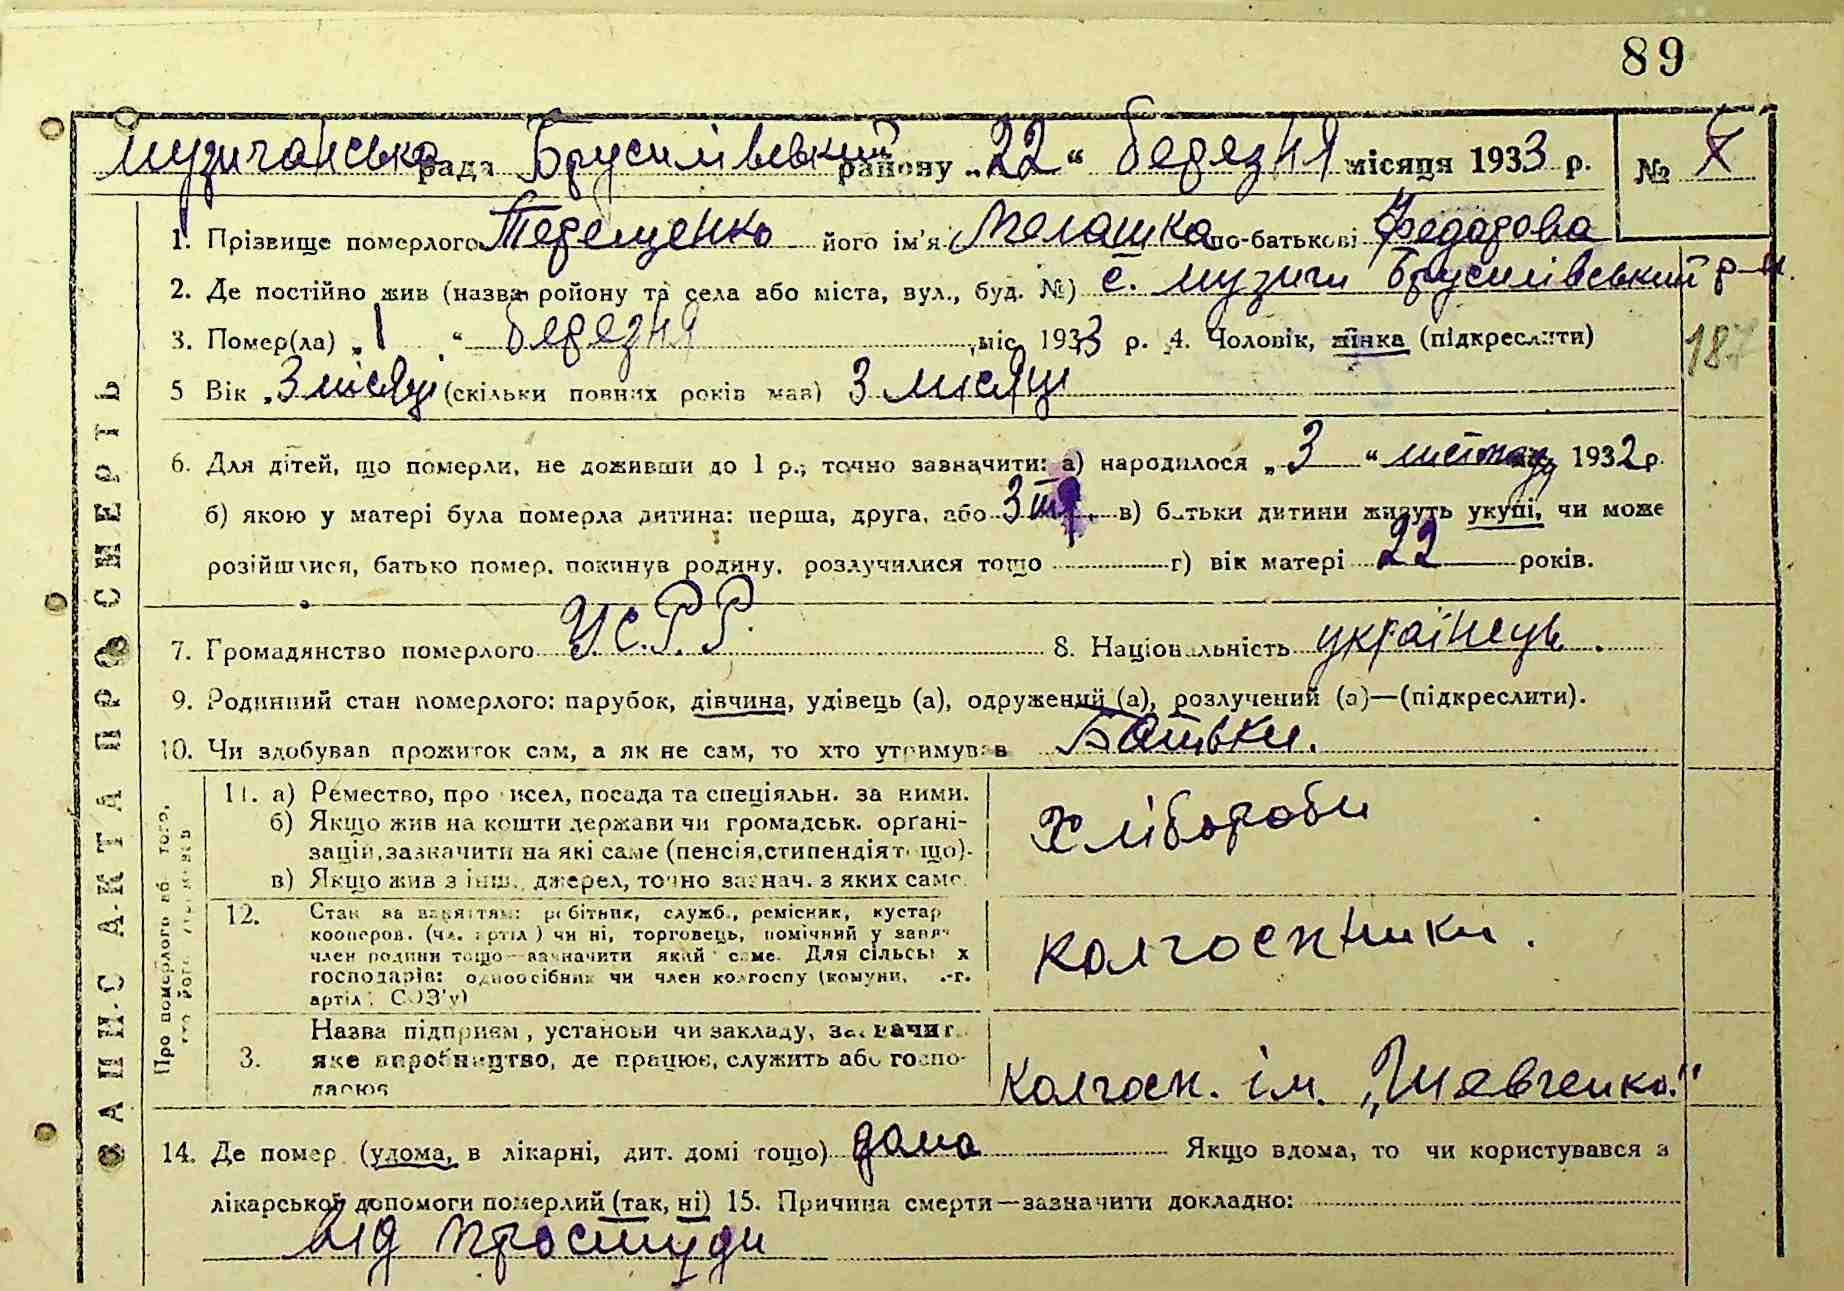 89
музичанська рада Брусилівський району „22“ березня місяця 1933 р. № X
1. Прізвище померлого Терещенко його ім'я Мелашка по-батькові Федорова
2. Де постійно жив (назва ройону та села або міста, вул., буд. №) с. музичи Брусилівський р-н.
3. Помер(ла) „1“ березня міс. 1933 р. 4. Чоловік, жінка (підкреслити)
187
5 Вік „3 місяці (скільки повних років мав) 3 місяци
6. Для дітей, що померли, не доживши до 1 р., точно зазначити: а) народилося „3“ листопаду 1932 р.
б) якою у матері була померла дитина: перша, друга, або 3 в) батьки дитини живуть укупі, чи може
розійшлися, батько помер, покинув родину, розлучилися тощо г) вік матері 22 років.
7. Громадянство померлого У.С.Р.Р. 8. Національність українець.
9. Родинний стан померлого: парубок, дівчина, удівець (а), одружений (а), розлучений (а)—(підкреслити).
10. Чи здобував прожиток сам, а як не сам, то хто утримував Батьки.
ЗАПИС АКТА ПРО СМЕРТЬ
Про померлого або того, хто його утримував
11. а) Ремество, промисел, посада та спеціяльн. за ними.
б) Якщо жив на кошти держави чи громадськ. орґані-
зацій, зазначити на які саме (пенсія, стипендія тощо).
в) Якщо жив з інш. джерел, точно зазнач. з яких саме.
хлібороби
12. Стан за заняттям: робітник, служб., ремісник, кустар
кооперов. (чл. артіл.) чи ні, торговець, помічний у занят.
член родини тощо—зазначити який саме. Для сільських
господарів: одноосібник чи член колгоспу (комуни, с.-г.
артіл., СОЗ'у)
колгоспники.
3. Назва підприєм., установи чи закладу, зазначит.
яке виробництво, де працює, служить або госпо-
дарює
колгосп. ім. „Шевченка."
14. Де помер (удома, в лікарні, дит. домі тощо) дома Якщо вдома, то чи користувався з
лікарської допомоги померлий (так, ні) 15. Причина смерти—зазначити докладно:
від простуди